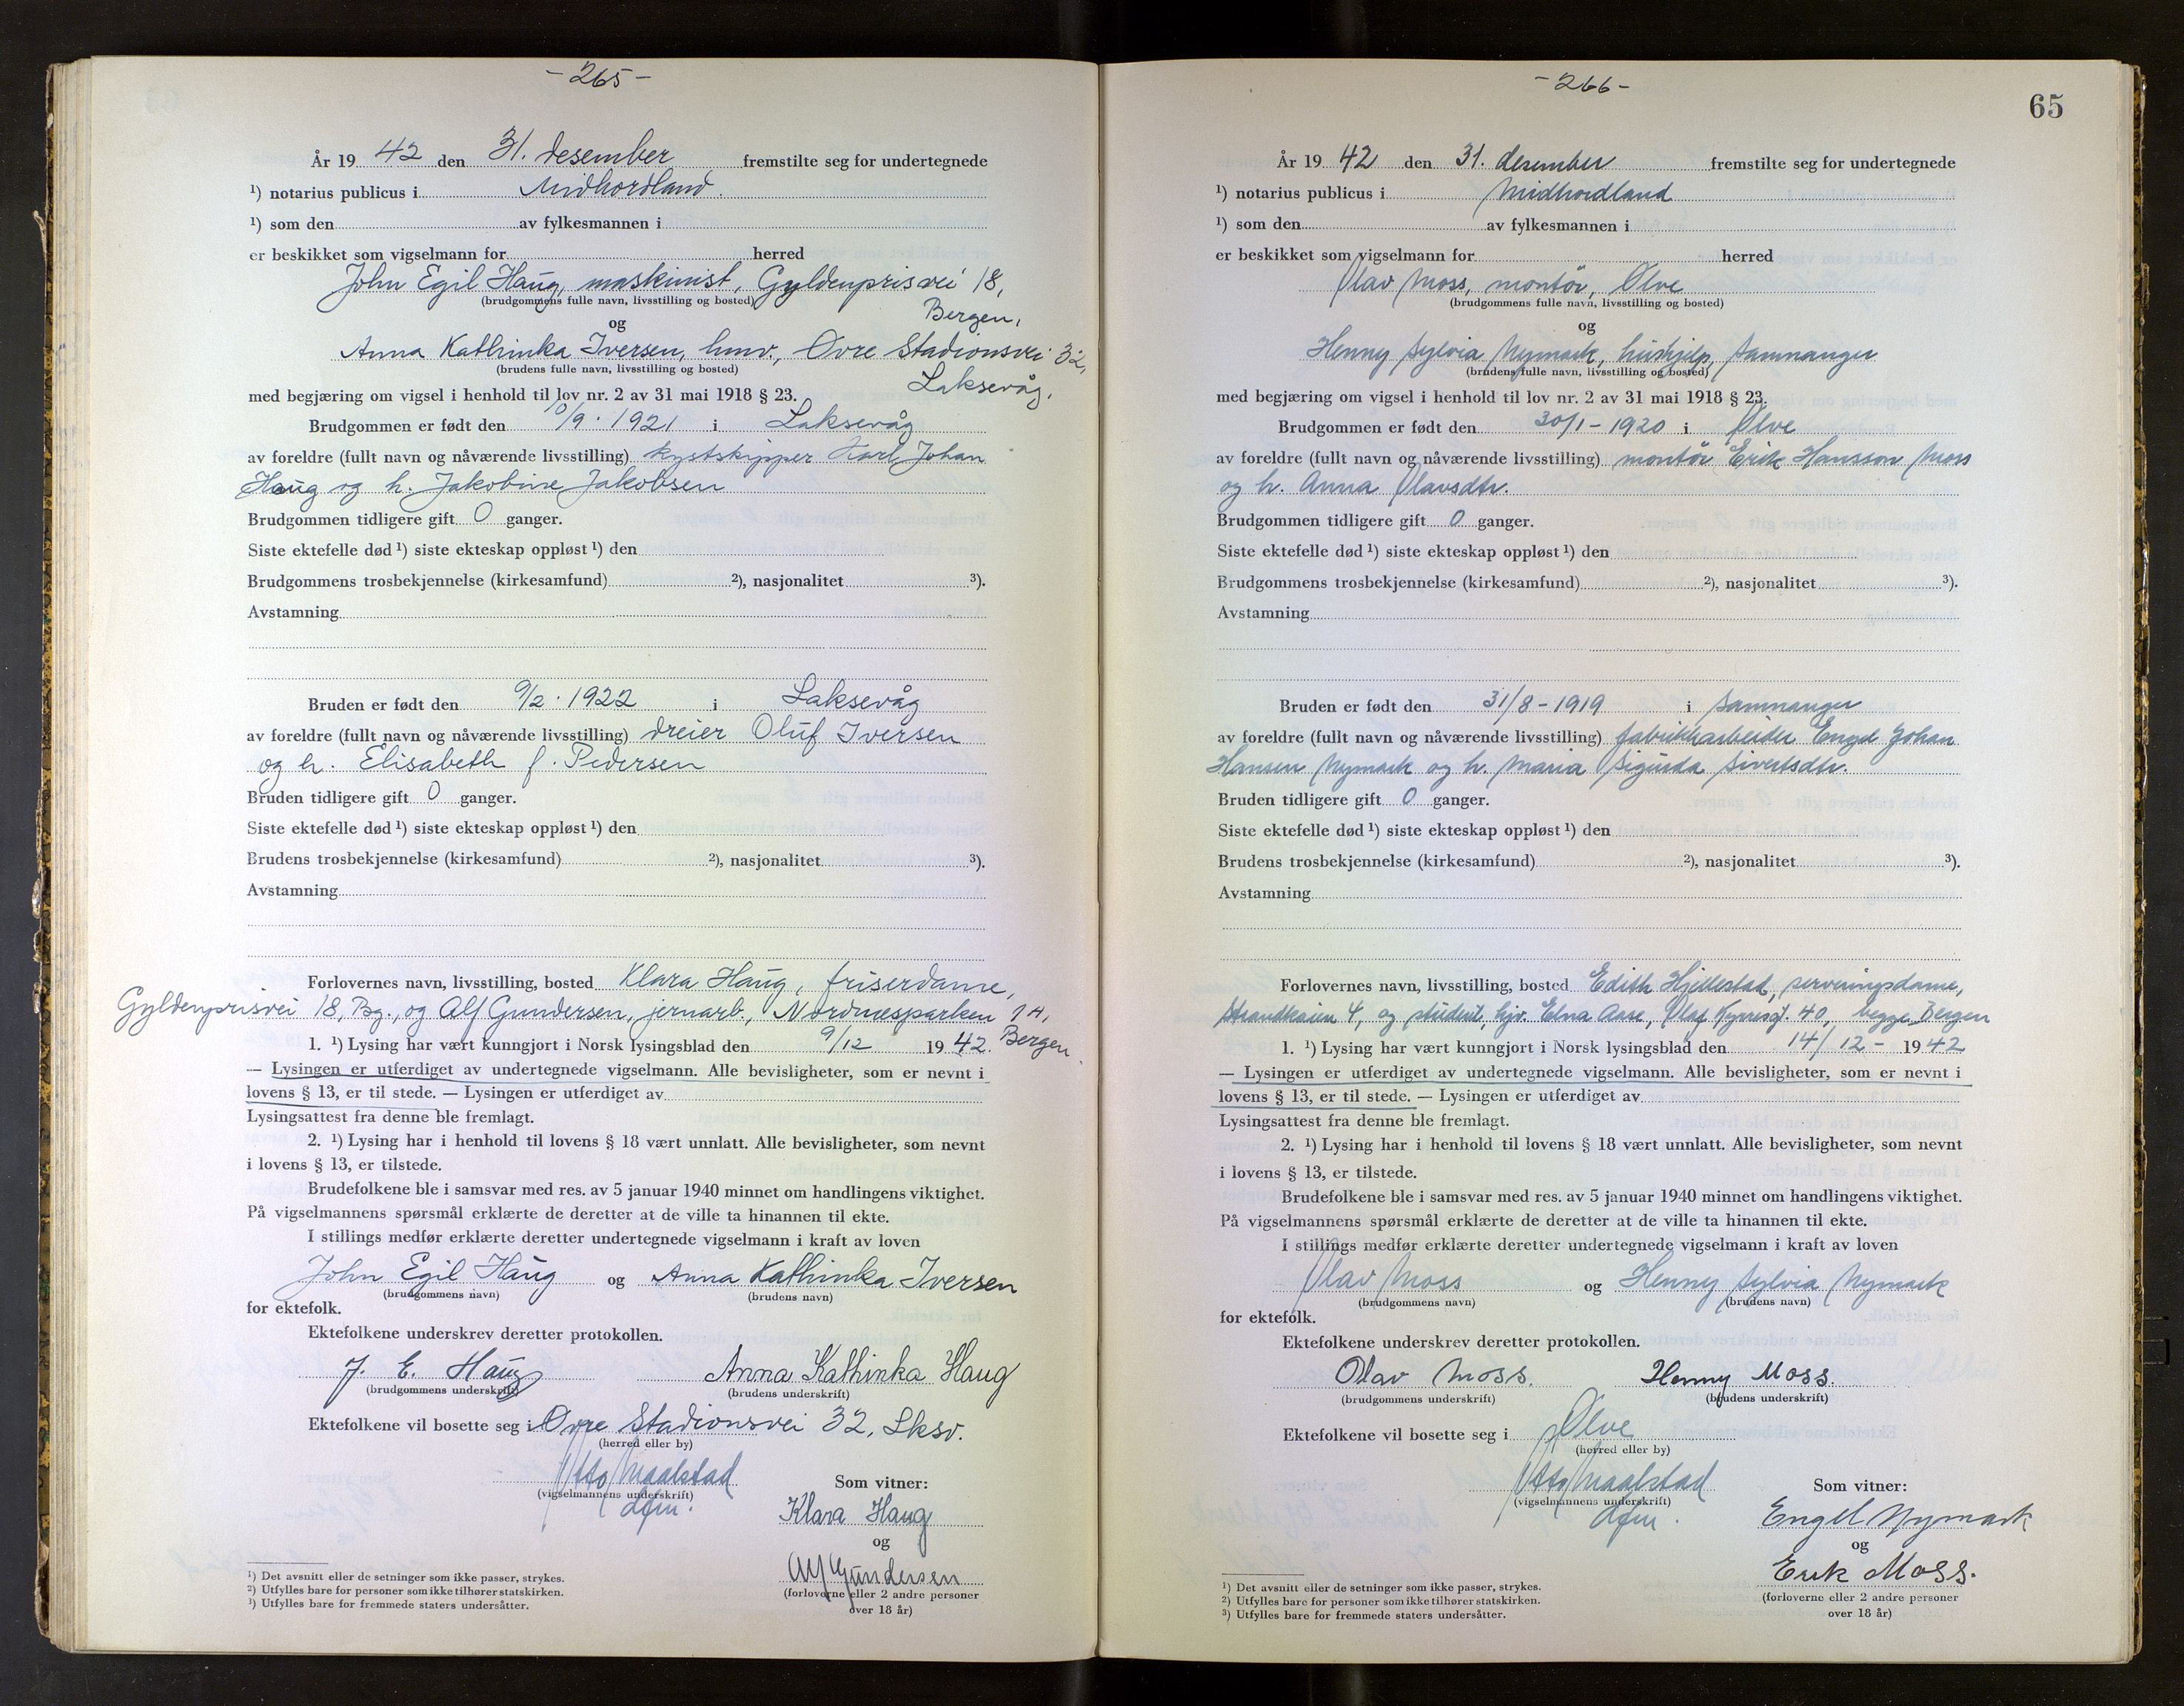 - 265 -
År 19 42 den 31. desember fremstilte seg for undertegnede
¹) notarius publicus i Midhordland.
¹) som den av fylkesmannen i
er beskikket som vigselmann for herred
John Egil Haug, maskinist, Gyldenprisvei 18,
(brudgommens fulle navn, livsstilling og bosted)
Bergen,
og
Anna Kathinka Iversen, hmv., Øvre Stadionsvei 32,
(brudens fulle navn, livsstilling og bosted)
Laksevåg,
med begjæring om vigsel i henhold til lov nr. 2 av 31 mai 1918 § 23.
Brudgommen er født den 10/9. 1921 i Laksevåg
av foreldre (fullt navn og nåværende livsstilling) kystskipper Karl Johan
Haug og h. Jakobine Jakobsen
Brudgommen tidligere gift 0 ganger.
Siste ektefelle død ¹) siste ekteskap oppløst ¹) den
Brudgommens trosbekjennelse (kirkesamfund) ²), nasjonalitet ³).
Avstamning
Bruden er født den 9/2. 1922 i Laksevåg
av foreldre (fullt navn og nåværende livsstilling) dreier Oluf Iversen
og h. Elisabeth f. Pedersen
Bruden tidligere gift 0 ganger.
Siste ektefelle død ¹) siste ekteskap oppløst ¹) den
Brudens trosbekjennelse (kirkesamfund) ²), nasjonalitet ³).
Avstamning
Forlovernes navn, livsstilling, bosted Klara Haug, friserdame,
Gyldenprisvei 18, Bg., og Alf Gundersen, jernarb., Nordnesparken 1A,
Bergen
1. ¹) Lysing har vært kunngjort i Norsk lysingsblad den 9/12 1942.
— Lysingen er utferdiget av undertegnede vigselmann. Alle bevisligheter, som er nevnt i
lovens § 13, er til stede. — Lysingen er utferdiget av
Lysingsattest fra denne ble fremlagt.
2. ¹) Lysing har i henhold til lovens § 18 vært unnlatt. Alle bevisligheter, som nevnt
i lovens § 13, er tilstede.
Brudefolkene ble i samsvar med res. av 5 januar 1940 minnet om handlingens viktighet.
På vigselmannens spørsmål erklærte de deretter at de ville ta hinannen til ekte.
I stillings medfør erklærte deretter undertegnede vigselmann i kraft av loven
John Egil Haug og Anna Kathinka Iversen
(brudgommens navn) (brudens navn)
for ektefolk.
Ektefolkene underskrev deretter protokollen.
J. E. Haug Anna Kathinka Haug
(brudgommens underskrift) (brudens underskrift)
Ektefolkene vil bosette seg i Øvre Stadionsvei 32, Lksv.
(herred eller by)
Otto Maalstad
(vigselmannens underskrift)
dfm.
Som vitner:
Klara Haug
og
Alf Gundersen
(forloverne eller 2 andre personer
over 18 år)
¹) Det avsnitt eller de setninger som ikke passer, strykes.
²) Utfylles bare for personer som ikke tilhører statskirken.
³) Utfylles bare for fremmede staters undersåtter.
- 266 -
65
År 19 42 den 31. desember fremstilte seg for undertegnede
¹) notarius publicus i Midhordland
¹) som den av fylkesmannen i
er beskikket som vigselmann for herred
Olav Moss, montør, Ølve
(brudgommens fulle navn, livsstilling og bosted)
og
Henny Sylvia Nymark, hushjelp, Samnanger
(brudens fulle navn, livsstilling og bosted)
med begjæring om vigsel i henhold til lov nr. 2 av 31 mai 1918 § 23.
Brudgommen er født den 30/1 - 1920 i Ølve
av foreldre (fullt navn og nåværende livsstilling) montør Erik Hansson Moss
og h. Anna Olavsdtr.
Brudgommen tidligere gift 0 ganger.
Siste ektefelle død ¹) siste ekteskap oppløst ¹) den
Brudgommens trosbekjennelse (kirkesamfund) ²), nasjonalitet ³).
Avstamning
Bruden er født den 31/8 - 1919 i Samnanger
av foreldre (fullt navn og nåværende livsstilling) fabrikkarbeider Engel Johan
Hansen Nymark og h. Maria Sigurda Sivertsdtr.
Bruden tidligere gift 0 ganger.
Siste ektefelle død ¹) siste ekteskap oppløst ¹) den
Brudens trosbekjennelse (kirkesamfund) ²), nasjonalitet ³).
Avstamning
Forlovernes navn, livsstilling, bosted Edith Hjellestad, serveringsdame,
Strandkaien 4, og student, hjv. Elna Aase, Olaf Kyrresgt. 40, begge Bergen
1. ¹) Lysing har vært kunngjort i Norsk lysingsblad den 14/12 - 1942
— Lysingen er utferdiget av undertegnede vigselmann. Alle bevisligheter, som er nevnt i
lovens § 13, er til stede. — Lysingen er utferdiget av
Lysingsattest fra denne ble fremlagt.
2. ¹) Lysing har i henhold til lovens § 18 vært unnlatt. Alle bevisligheter, som nevnt
i lovens § 13, er tilstede.
Brudefolkene ble i samsvar med res. av 5 januar 1940 minnet om handlingens viktighet.
På vigselmannens spørsmål erklærte de deretter at de ville ta hinannen til ekte.
I stillings medfør erklærte deretter undertegnede vigselmann i kraft av loven
Olav Moss og Henny Sylvia Nymark
(brudgommens navn) (brudens navn)
for ektefolk.
Ektefolkene underskrev deretter protokollen.
Olav Moss. Henny Moss.
(brudgommens underskrift) (brudens underskrift)
Ektefolkene vil bosette seg i Ølve
(herred eller by)
Otto Maalstad
(vigselmannens underskrift)
dfm.
Som vitner:
Engel Nymark
og
Erik Moss.
(forloverne eller 2 andre personer
over 18 år)
¹) Det avsnitt eller de setninger som ikke passer, strykes.
²) Utfylles bare for personer som ikke tilhører statskirken.
³) Utfylles bare for fremmede staters undersåtter.